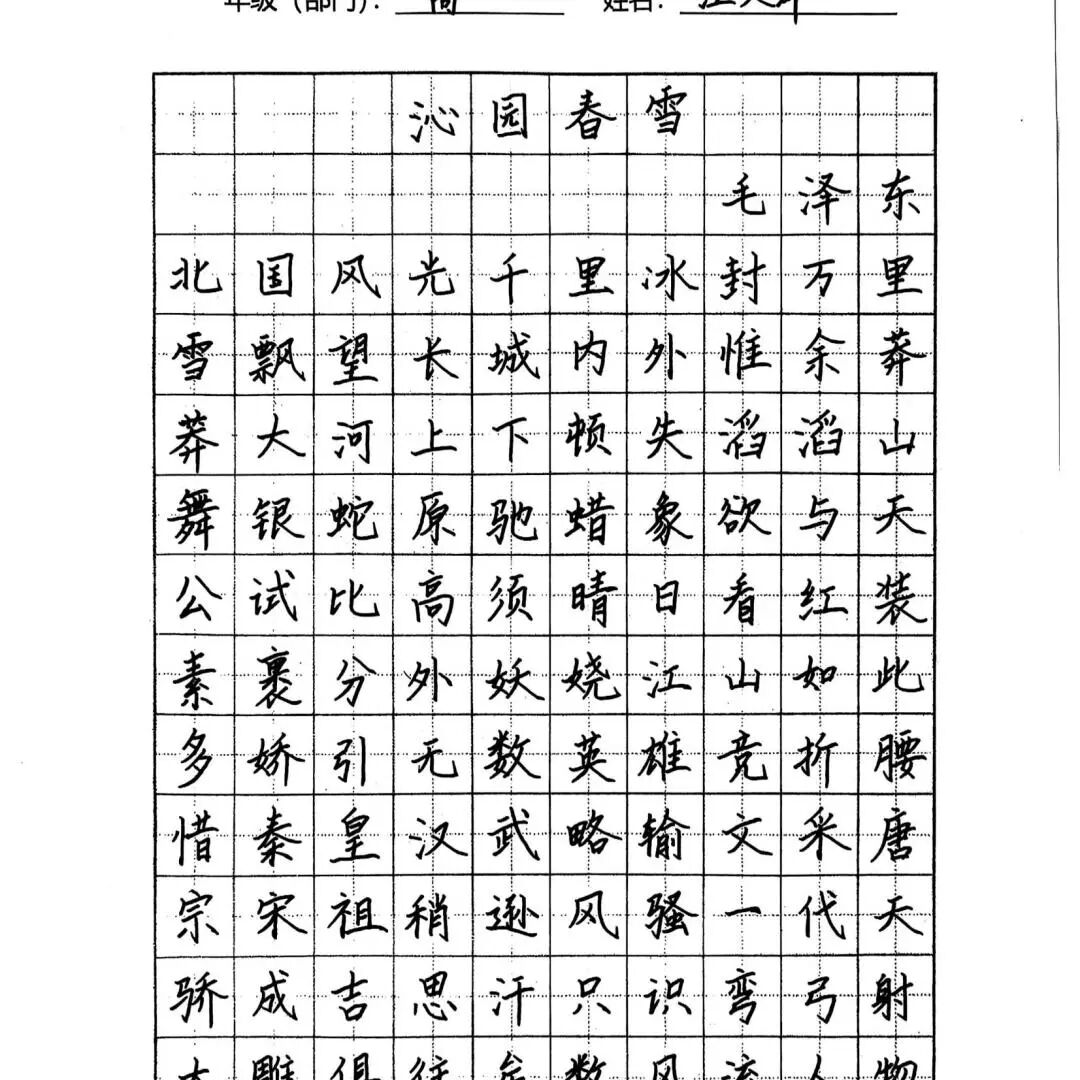 年级（部门）： 姓名：
沁园春雪
毛泽东
北国风光千里冰封万里
雪飘望长城内外惟余莽
莽大河上下顿失滔滔山
舞银蛇原驰蜡象欲与天
公试比高须晴日看红装
素裹分外妖娆江山如此
多娇引无数英雄竞折腰
惜秦皇汉武略输文采唐
宗宋祖稍逊风骚一代天
骄成吉思汗只识弯弓射
大雕俱往矣数风流人物